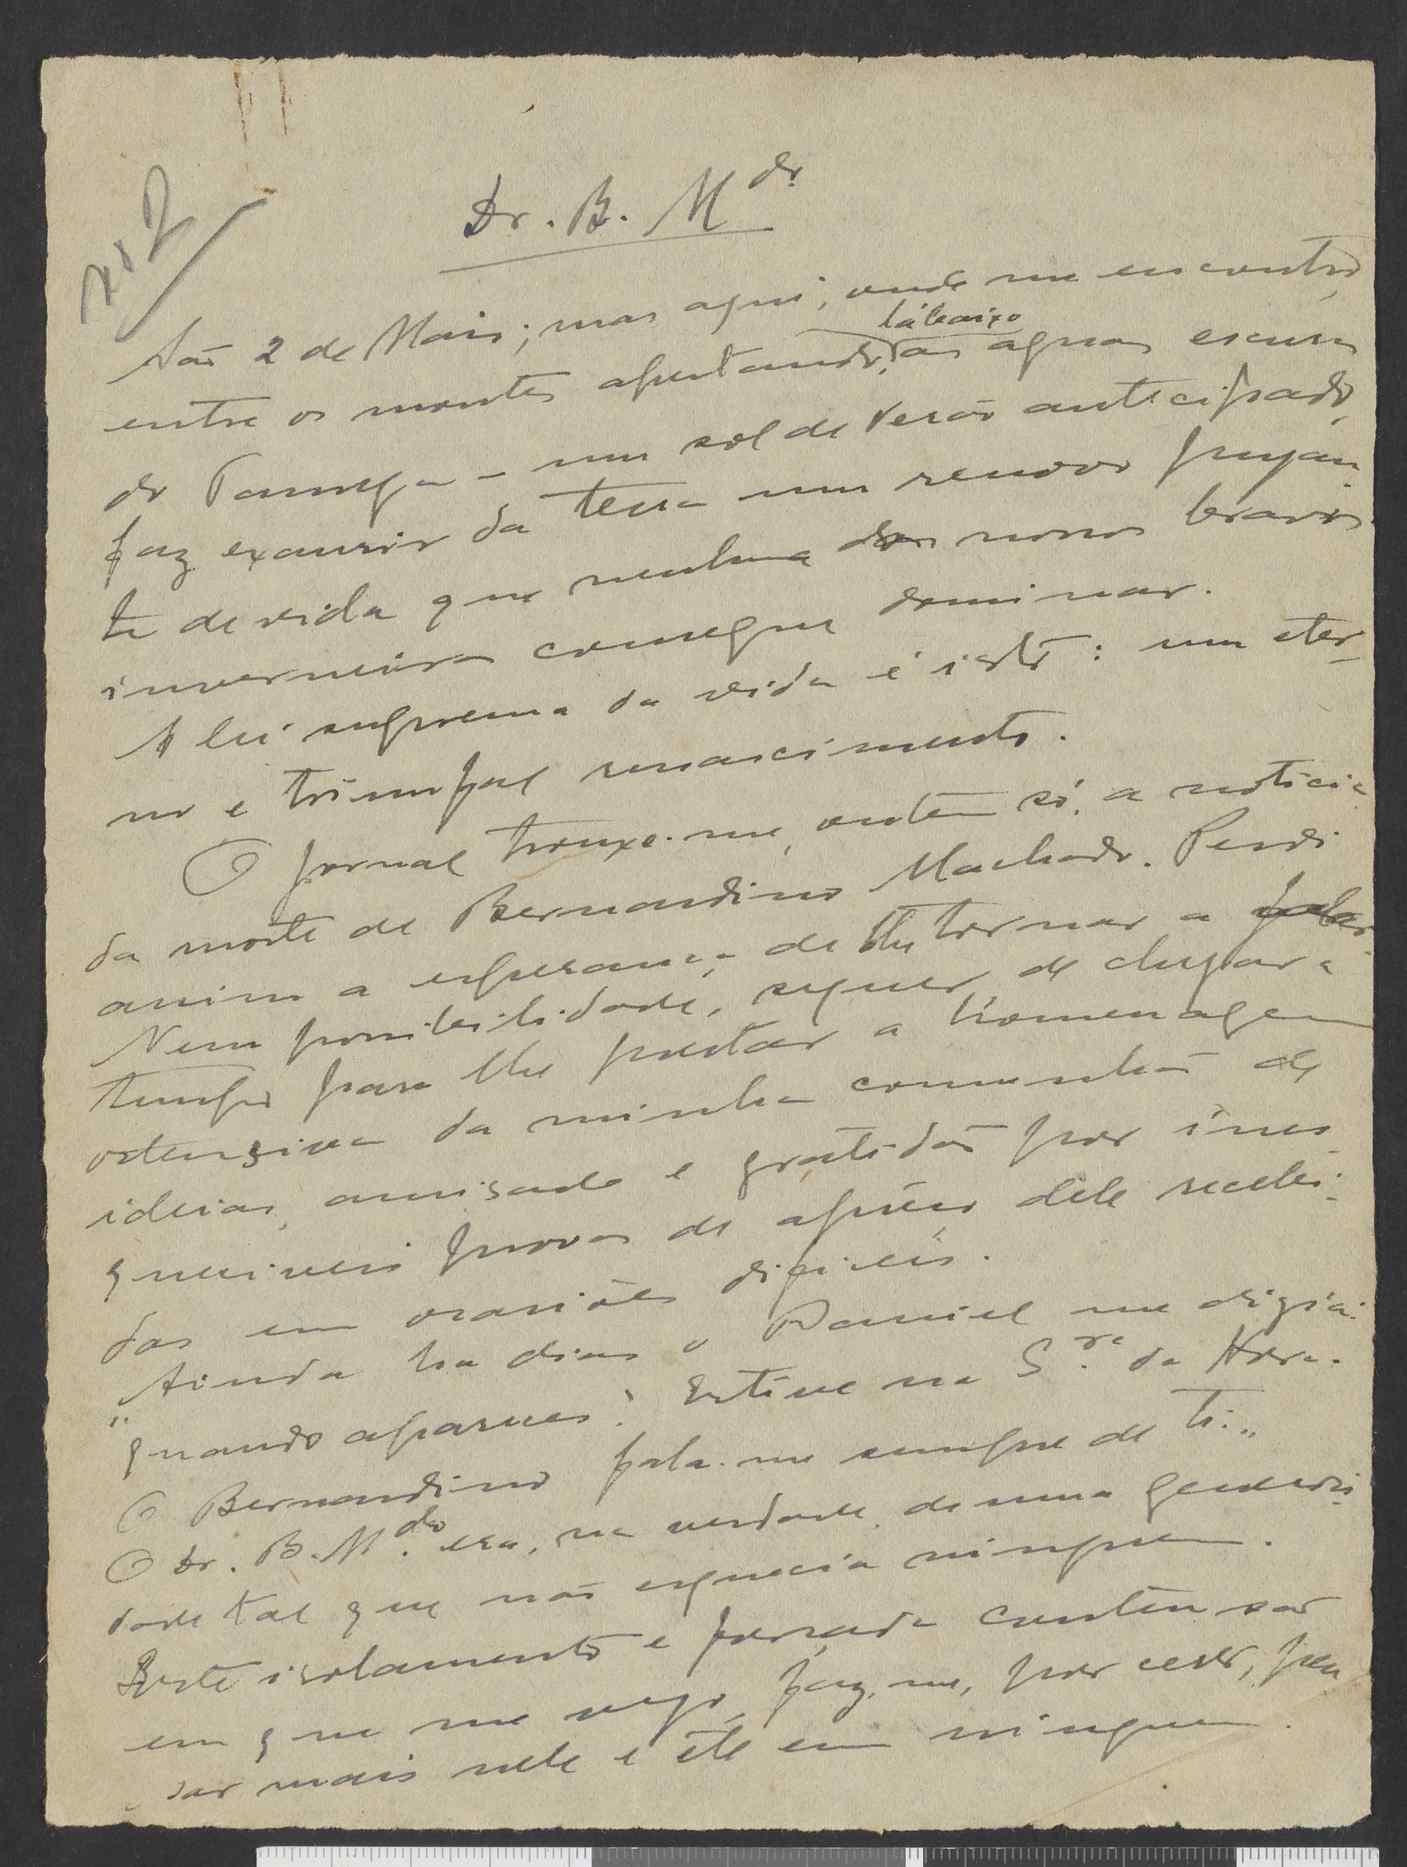 Dr. B. Mdo
São 2 de Maio; mas aqui, onde me encontro
entre os montes apertando, lá baixo as aguas escuras
do Tamega - um sol de Verão antecipado,
faz exaurir da terra um renovo pujan-
te de vida que nenhuma dos nossos bravios
inverneiras consegue dominar.
A lei suprema da vida é isto: um eter-
no e triumfal renascimento.
O jornal trouxe-me, ontem só, a noticia
da morte de Bernardino Machado. Perdi
assim a esperança de lhe tornar a falar
Nem possibilidade, sequer, de chegar a
tempo para lhe prestar a homenagem
ostensiva da minha comunhão de
ideias, amisade e gratidão por ines-
queciveis provas de apreço dele recebi-
das em ocasiões dificeis.
Ainda ha dias o Daniel me dizia:
"quando apareces? Estive na S.ra da Hora.
O Bernardino fala-me sempre de ti."
O Dr. B. M.do era, na verdade, de uma generosi-
dade tal que não esquecia ninguem.
Este isolamento e forçada contensão
em que me vejo, faz-me, por certo, pen
sar mais nele e ele em ninguem.